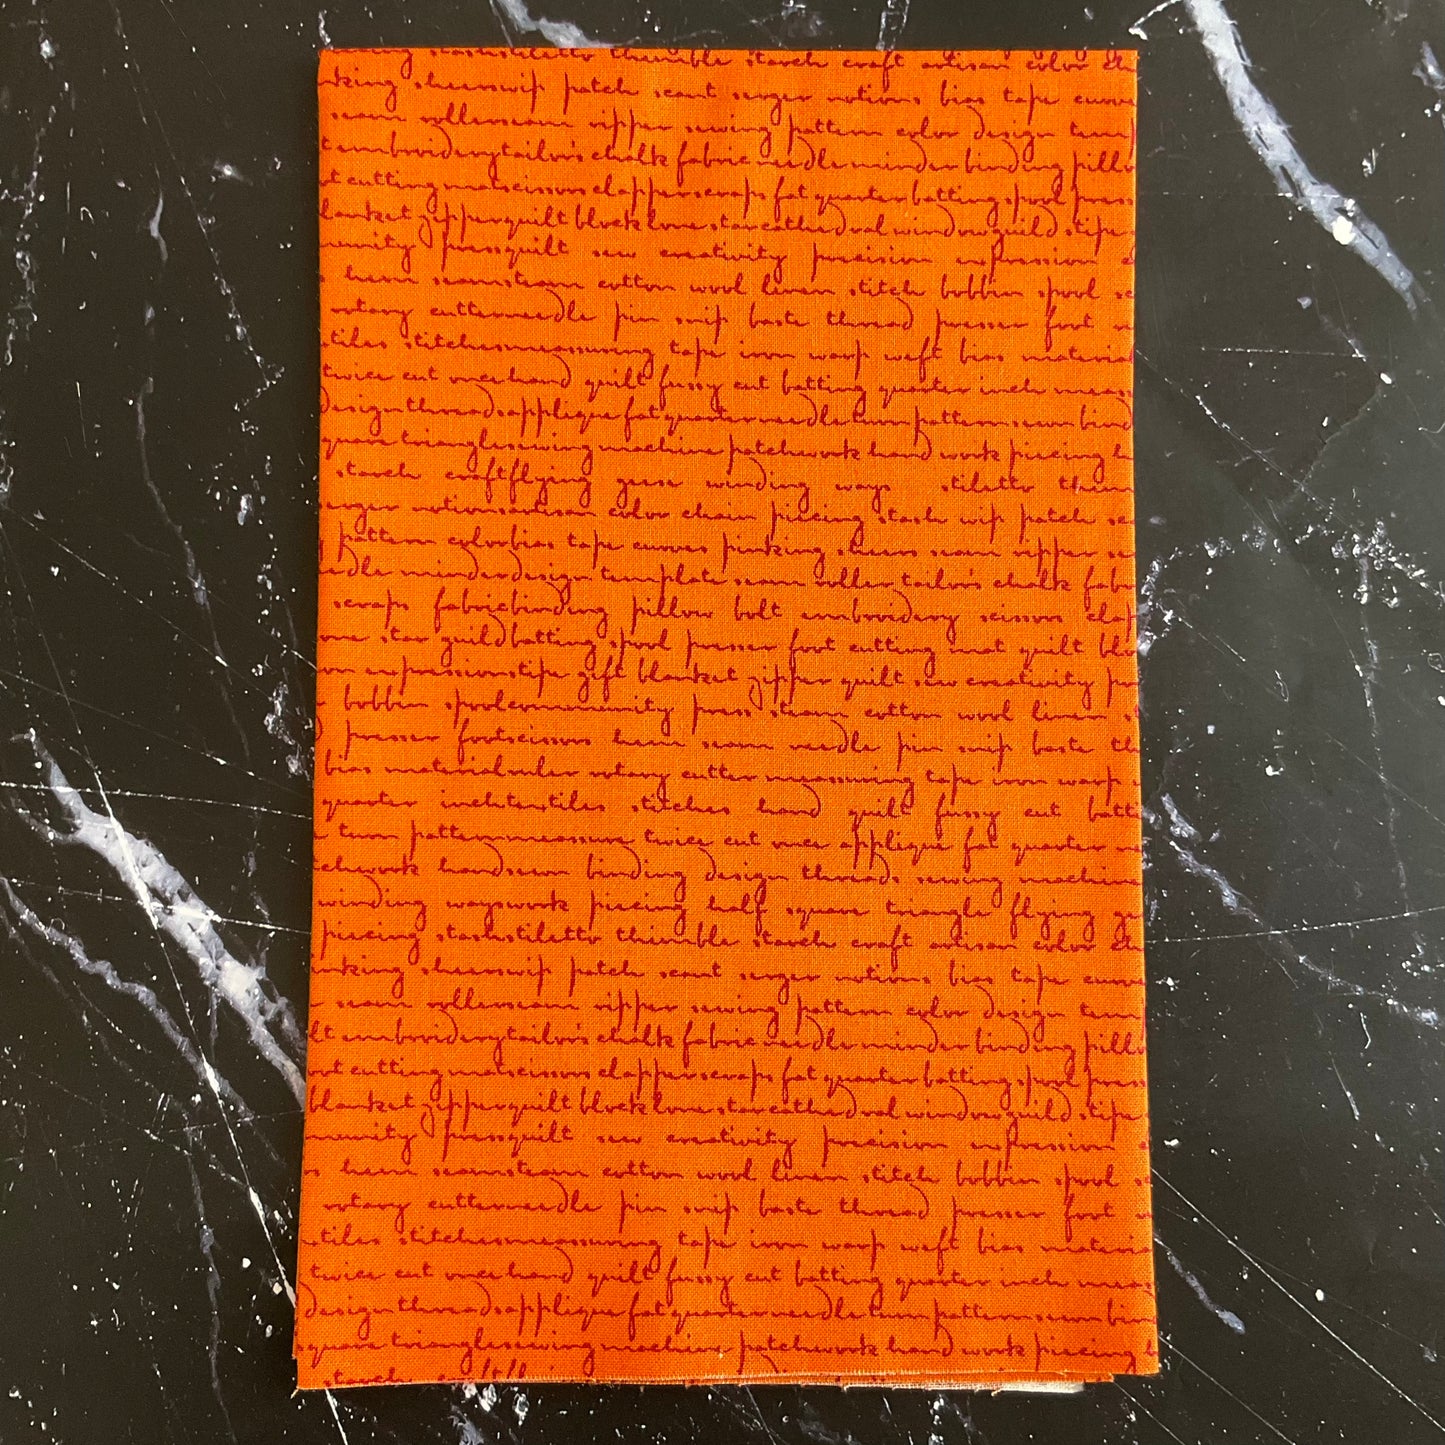 stashstiletto thimble starch craft artisan color
sheerswip patch scant serger notions bias tape curves
seam rollerseam ripper sewing pattern color design
embroiderytailor's chalk fabricneedleminder binding
cutting matscissorsclapperscraps fat quarter batting spool
blanket zipperquilt block lone starcathedral windowguild stipe
pressquilt sew creativity precision expression
hem seamsteam cotton wool linen stitch bobbin spool
rotary cutterneedle pin snip baste thread presser foot
stitchesmeasuring tape iron warp weft bias
twice cut oncehand quilt fussy cut batting quarter inch
designthreadsapplique fat quarterneedleturn patternsewn
trianglesewing machine patchwork hand work piecing
starch craftflying geese winding ways stiletto
notionsartisan color chain piecing stash wip patch
pattern colorbias tape curves pinking sheers seam ripper
minderdesign template seam roller tailor's chalk
scraps fabricbinding pillow bolt embroidery scissors
star guildbatting spool presser foot cutting mat quilt
expressionstipe gift blanket zipper quilt sew creativity
bobbin spoolcommunity press steam cotton wool linen
presser footscissors hem seam needle pin snip baste
bias materialruler rotary cutter measuring tape iron warp
quarter inchtextiles stitches hand quilt fussy cut
turn patternmeasure twice cut once applique fat quarter
handsewn binding design threads sewing machine
winding wayswork piecing half square triangle flying
piecing stashstiletto thimble starch craft artisan color
sheerswip patch scant serger notions bias tape
seam rollerseam ripper sewing pattern color design
embroiderytailor's chalk fabricneedleminder binding
cutting matscissorsclapperscraps fat quarter batting spool
blanket zipperquilt block lone starcathedral windowguild stipe
pressquilt sew creativity precision expression
hem seamsteam cotton wool linen stitch bobbin spool
rotary cutterneedle pin snip baste thread presser foot
stitchesmeasuring tape iron warp weft bias
twice cut oncehand quilt fussy cut batting quarter inch
designthreadsapplique fat quarterneedleturn patternsewn
square trianglesewing machine patchwork hand work piecing